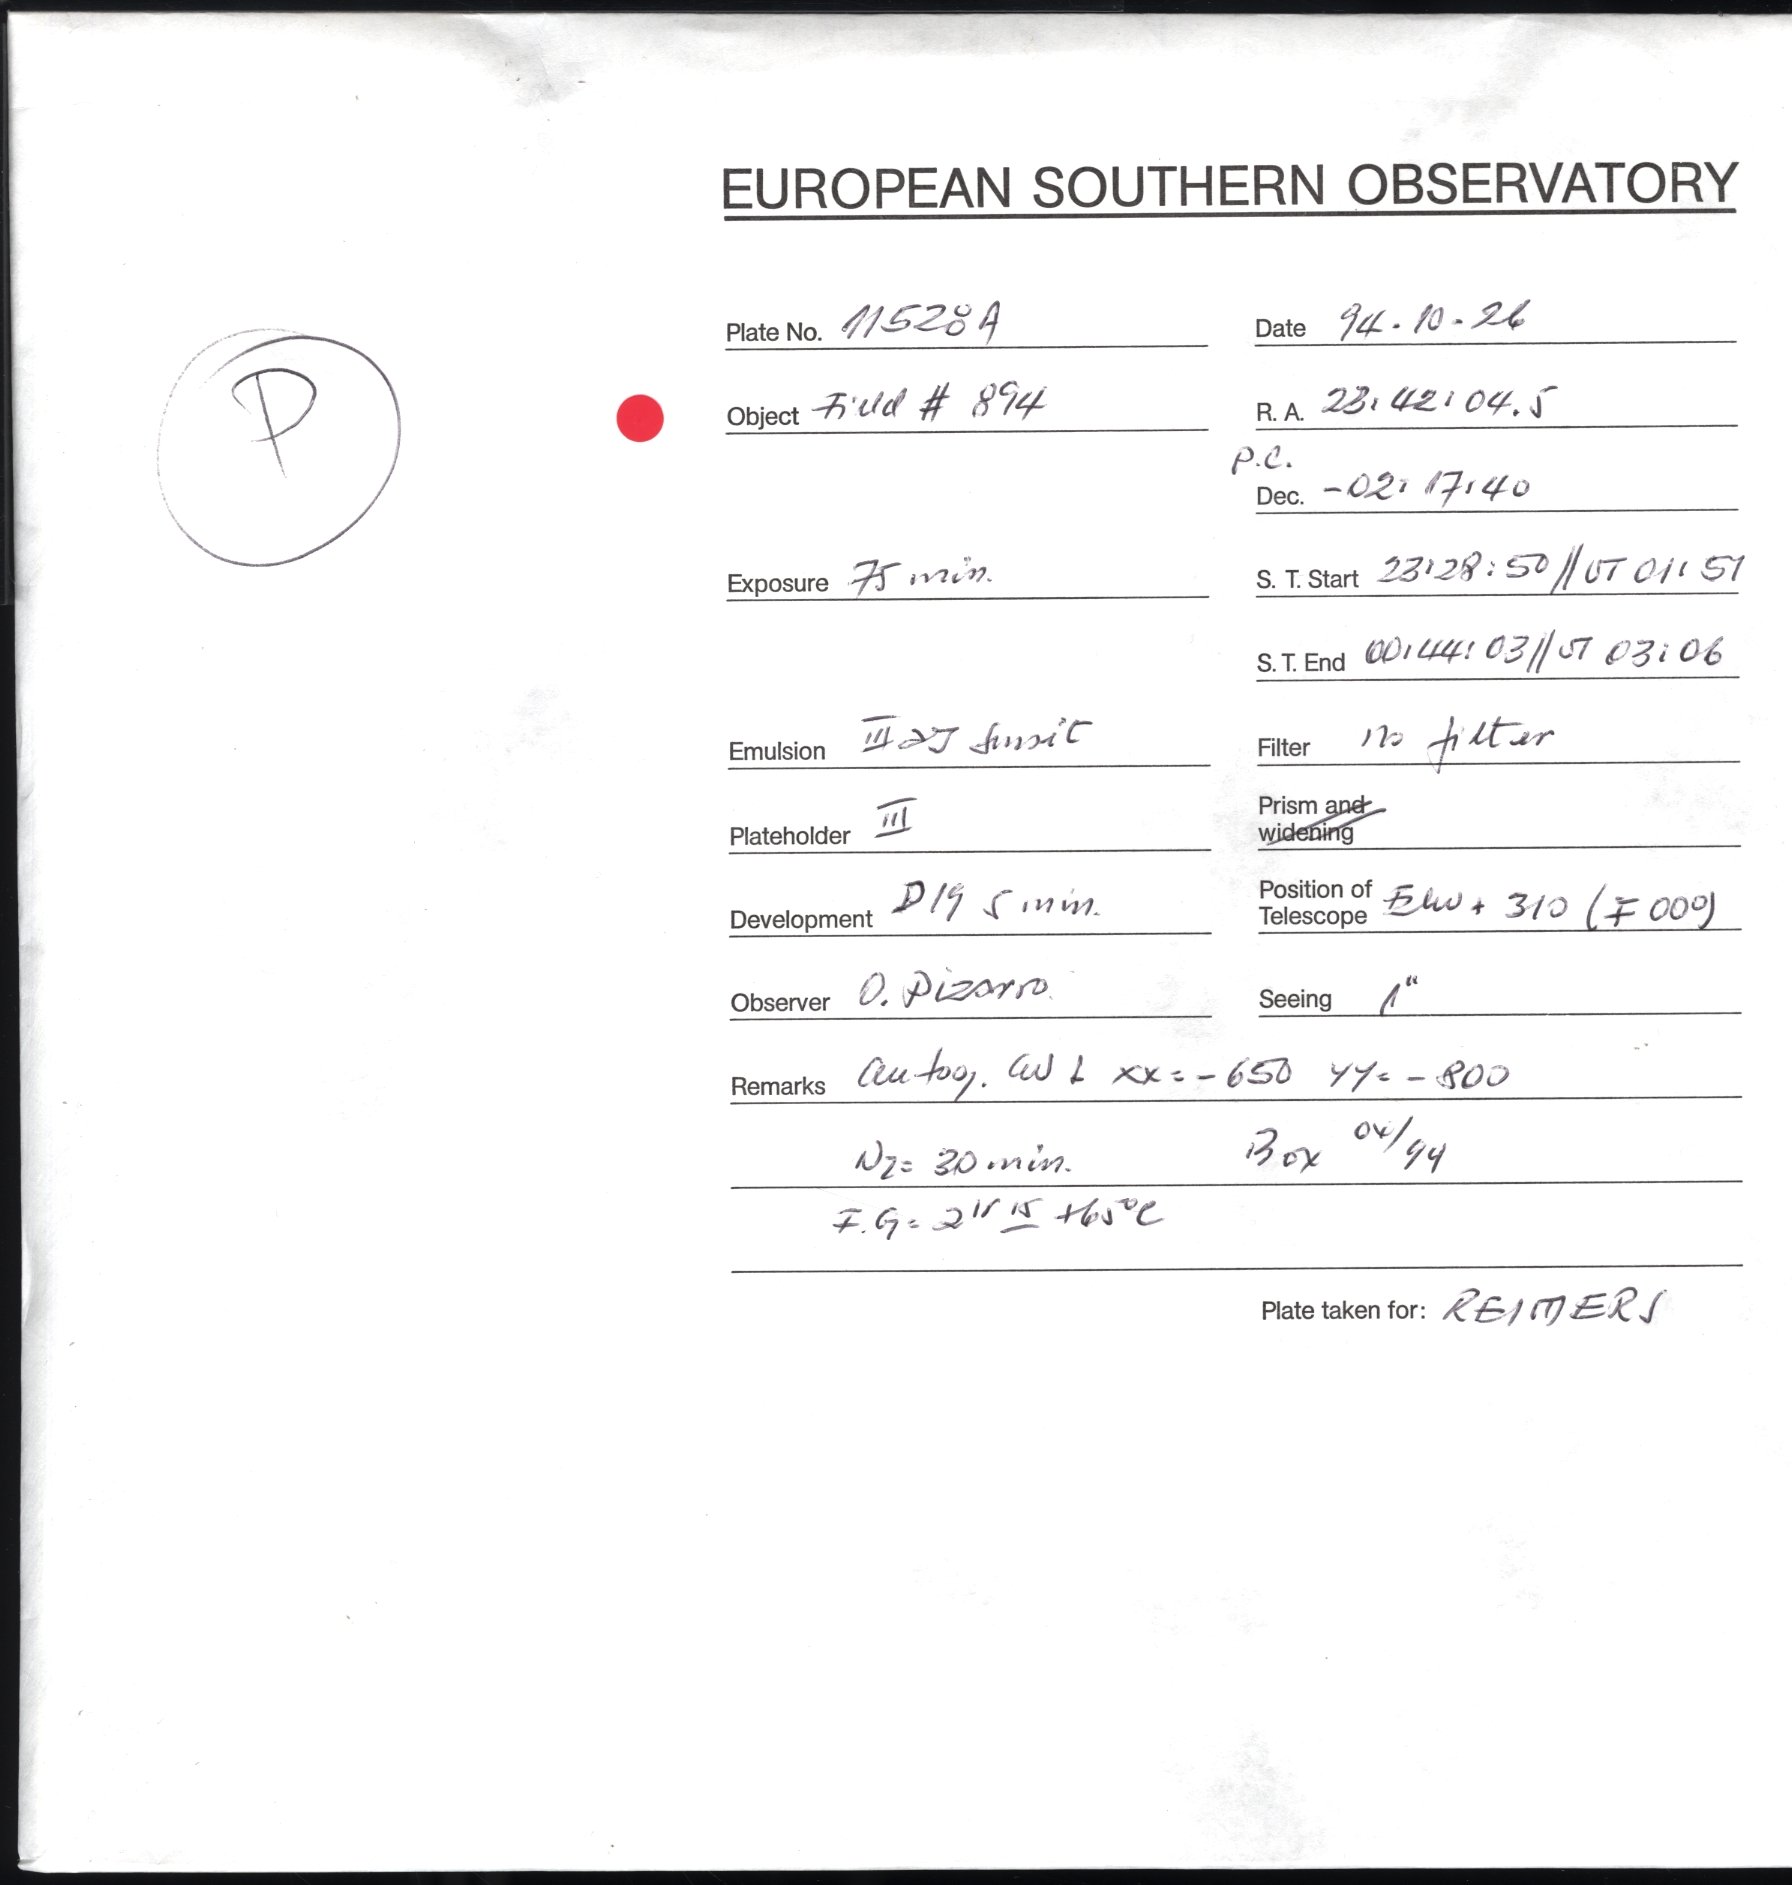 EUROPEAN SOUTHERN OBSERVATORY
Plate No. 11528A Date 94.10.26
P
Object Field # 894 R. A. 23:42:04.5
P.C.
Dec. -02:17:40
Exposure 75 min. S. T. Start 23:28:50//UT 01:51
S. T. End 00:44:03//UT 03:06
Emulsion III aJ Filter no filter
Plateholder III Prism and widening
Development D19 5 min. Position of Telescope + 310 (F 000)
Observer O. Pizarro. Seeing 1"
Remarks xx=-650 yy=-800
N2= 30 min. Box 04/94
F.G= +65°C
Plate taken for: REIMERS